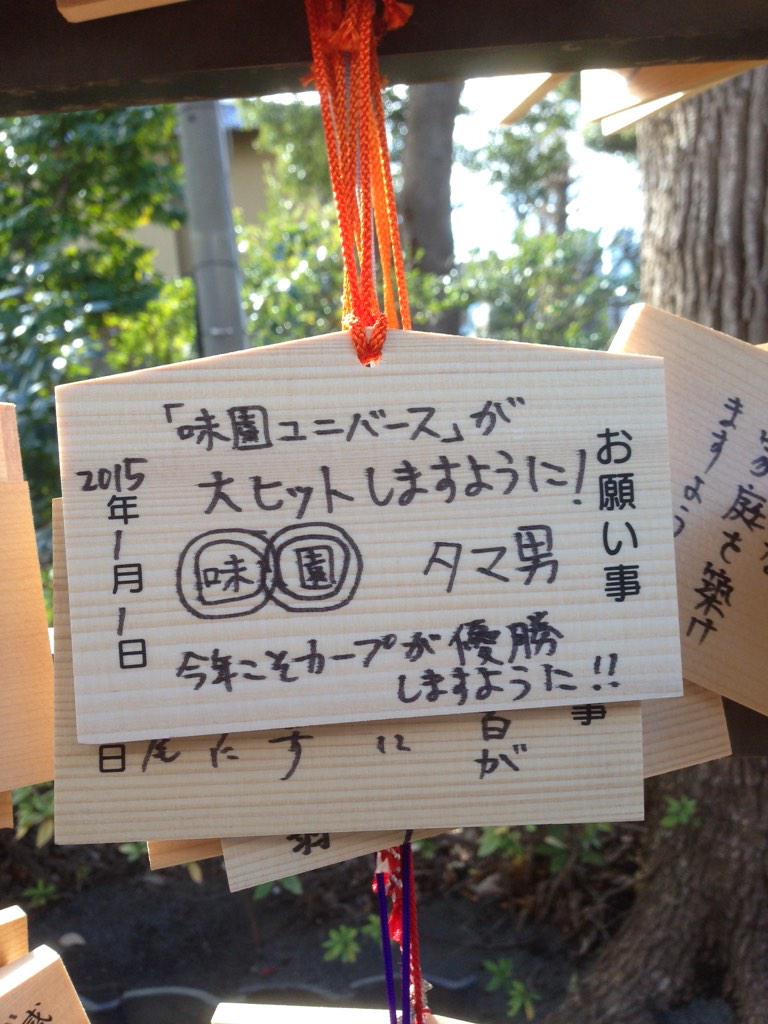 お願い事
「味園ユニバース」が
大ヒットしますように!
味 園 タマ男
今年こそカープが優勝
しますように!!
2015年1月1日
庭を築け
ますよう
事
白が
に
す
た
尾
日